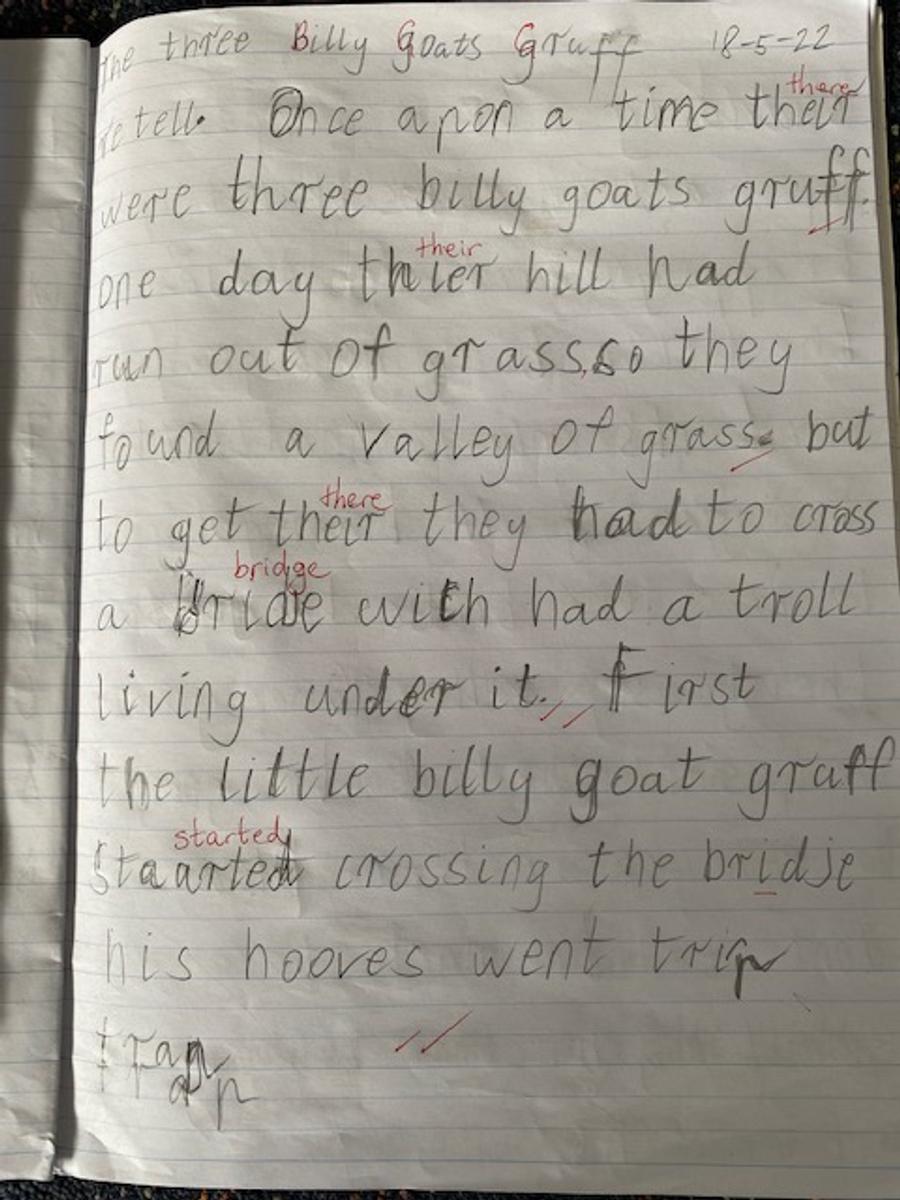 The three Billy Goats Gruff 18-5-22
there
retell. Once apon a time their
were three billy goats gruff.
their
one day thier hill had
run out of grass,so they
found a valley of grass. but
there
to get their they had to cross
bridge
a bridje with had a troll
living under it. First
the little billy goat gruff
started
staarted crossing the bridje
his hooves went trip
trap